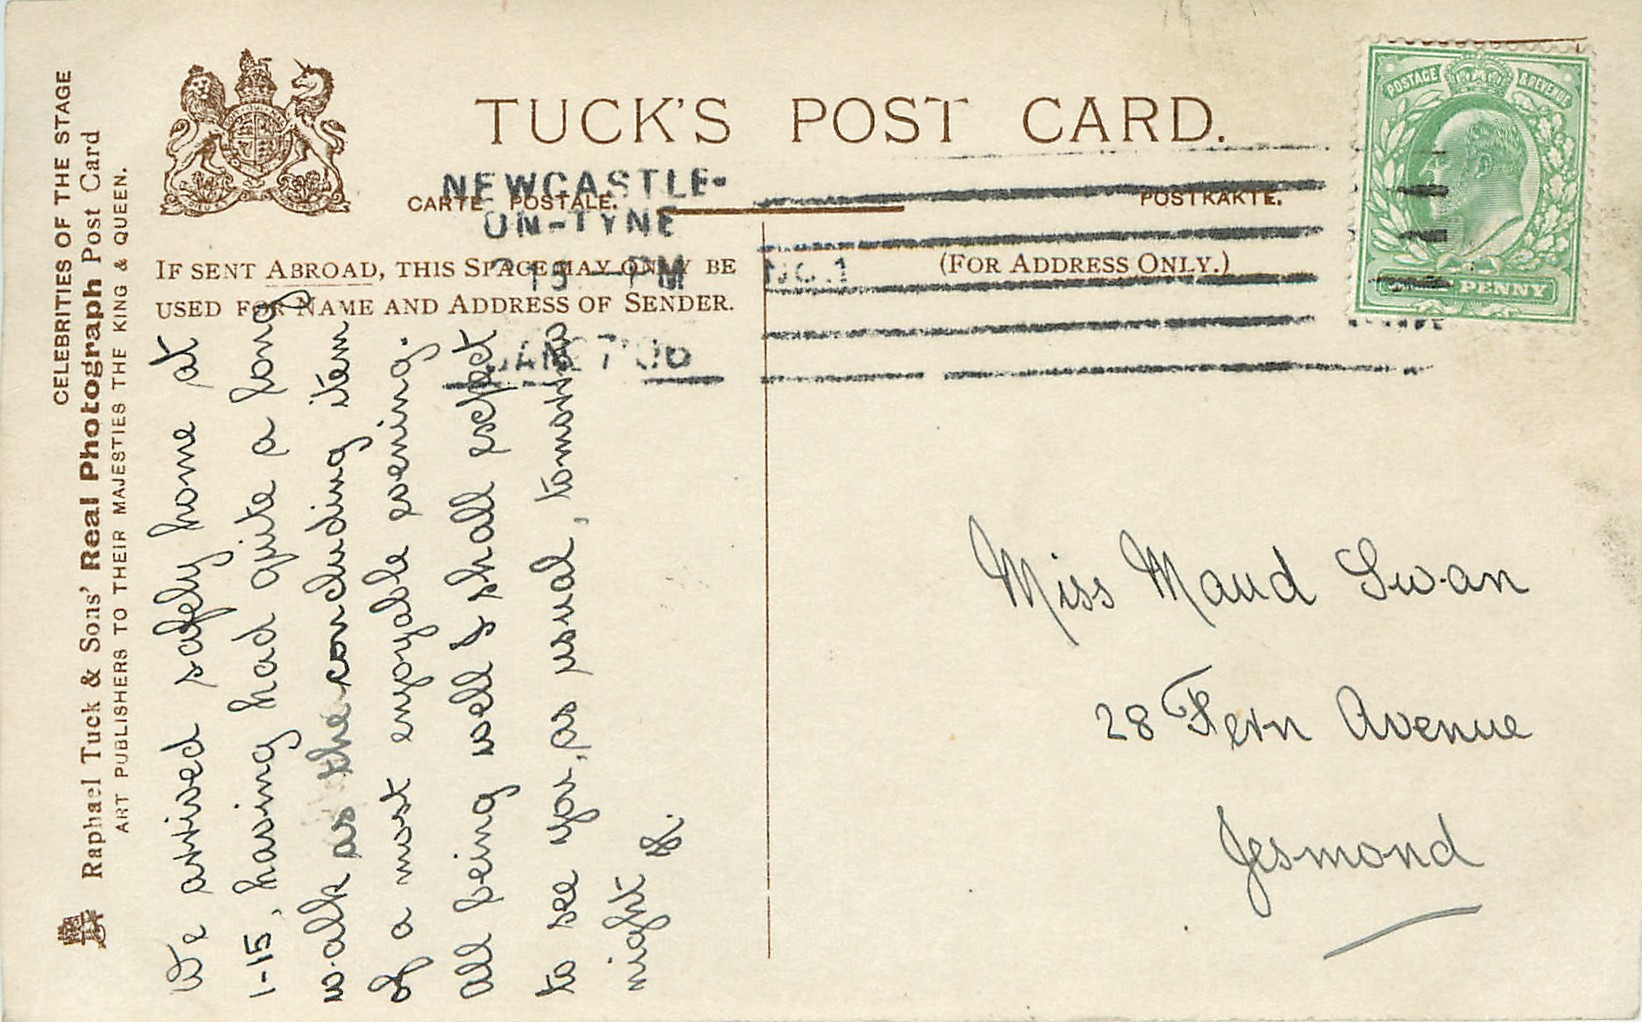 TUCK'S POST CARD.
CARTE POSTALE.
POSTKAKTE.
NEWCASTLE-
ON-TYNE
15 PM
NO. 1
JAN 27 06
IF SENT ABROAD, THIS SPACE MAY ONLY BE
USED FOR NAME AND ADDRESS OF SENDER.
(FOR ADDRESS ONLY.)
POSTAGE & REVENUE
PENNY
CELEBRITIES OF THE STAGE
Raphael Tuck & Sons' Real Photograph Post Card
ART PUBLISHERS TO THEIR MAJESTIES THE KING & QUEEN.
We arrived safely home at
1-15, having had quite a long
walk as the concluding item
of a most enjoyable evening.
All being well I shall expect
to see you, as usual, tomorrow
night
Miss Maud Swan
28 Fern Avenue
Jesmond